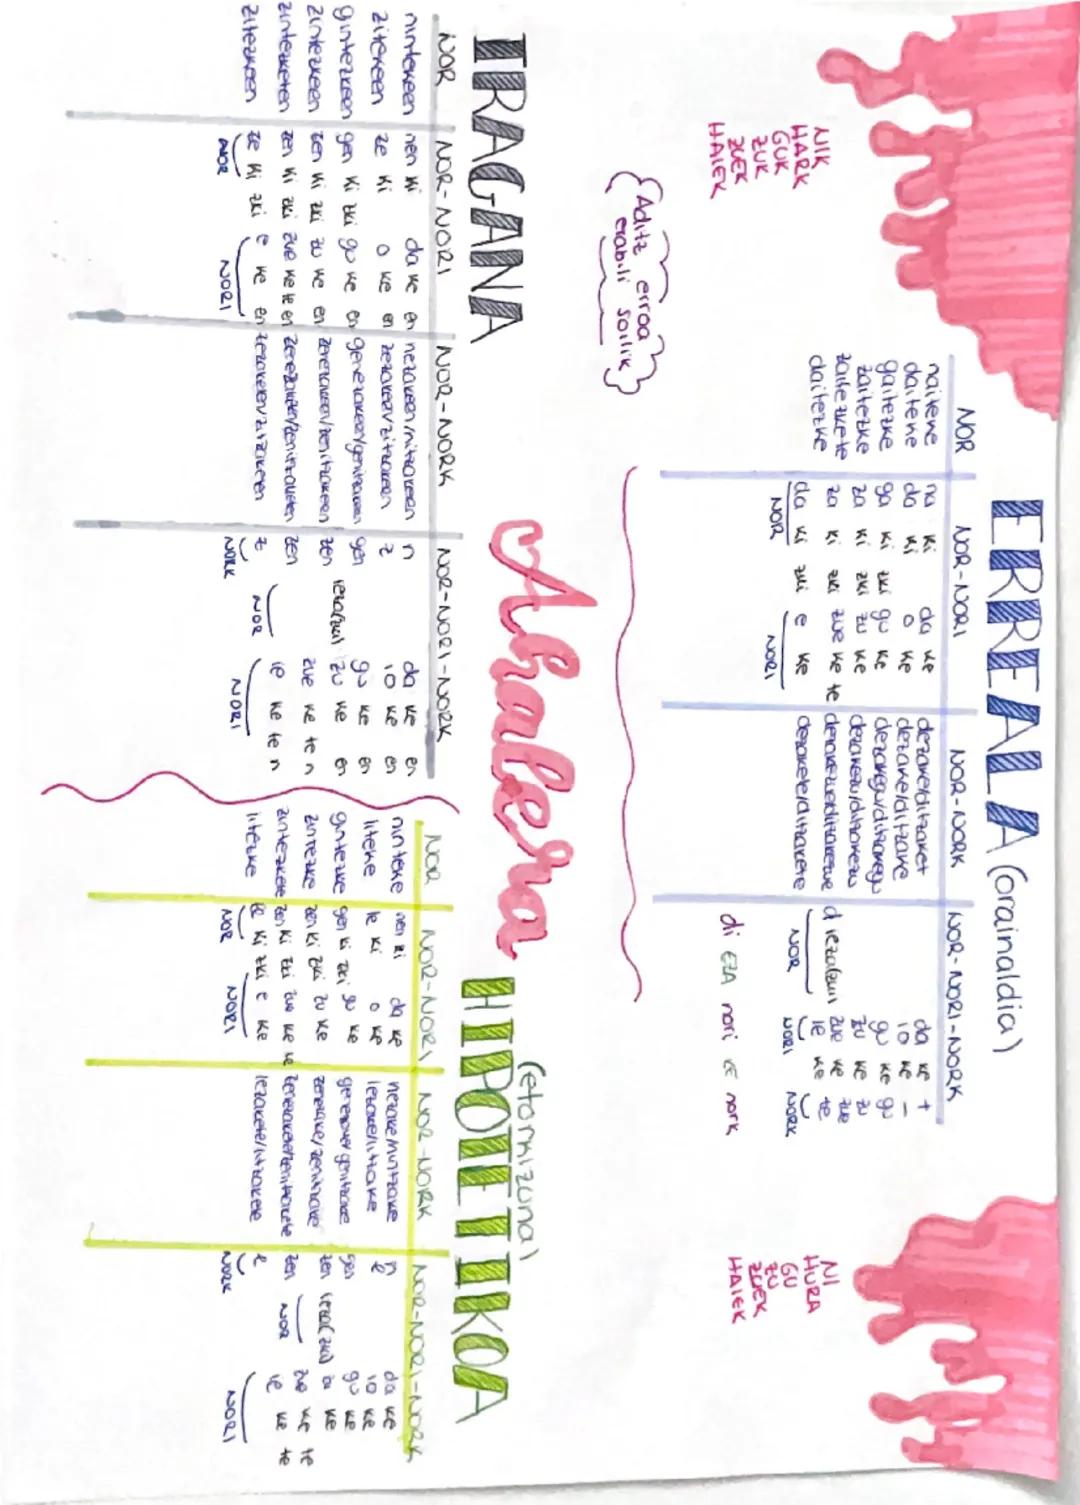 ERREALA (orainaldia)
NIK
HARK
GUK
ZUK
ZUEK
HAIEK
NI
HURA
GU
ZU
ZUEK
HAIEK
NOR NOR-NORI NOR-NORK NOR-NORI-NORK
naiteke na ki da ke dezaket/ditzaket da ke t
daiteke da ki o ke dezake/ditzake io ke -
gaitezke ga ki zki gu ke dezakegu/ditzakegu gu ke gu
zaitezke za ki zki zu ke dezakezu/ditzakezu zu ke zu
zaitezkete za ki zki zue ke te dezakezue/ditzakezue d ieza(zki) zue ke zue
daitezke da ki zki e ke dezakete/ditzakete ie ke te
NOR NORI NOR NORI NORK
di EZA nori KE nork
Aditz erroa
erabili soilik
Ahalera
IRAGANA
NOR NOR-NORI NOR-NORK NOR-NORI-NORK
nintekeen nen ki da ke en nezakeen/nitzakeen n da ke en
zitekeen ze ki o ke en zezakeen/zitzakeen z io ke en
gintezkeen gen ki zki gu ke en genezakeen/genitzakeen gen gu ke en
zintezkeen zen ki zki zu ke en zenezakeen/zenitzakeen zen ieza(zki) zu ke en
zintezketen zen ki zki zue ke te en zenezaketen/zenitzaketen zen zue ke te n
zitezkeen ze ki zki e ke en zezaketen/zitzaketen z ie ke te n
NOR NORI NORK NOR NORI
HIPOTETIKOA
(etorkizuna)
NOR NOR-NORI NOR-NORK NOR-NORI-NORK
ninteke nen ki da ke nezake/nintzake n da ke
liteke le ki o ke lezake/litzake l io ke
gintezke gen ki zki gu ke genezake/genitzake gen gu ke
zintezke zen ki zki zu ke zenezake/zenitzake zen ieza(zki) zu ke
zintezkete zen ki zki zue ke te zenezakete/zenitzakete zen zue ke te
litezke le ki zki e ke lezakete/litzakete l ie ke te
NOR NORI NORK NOR NORI